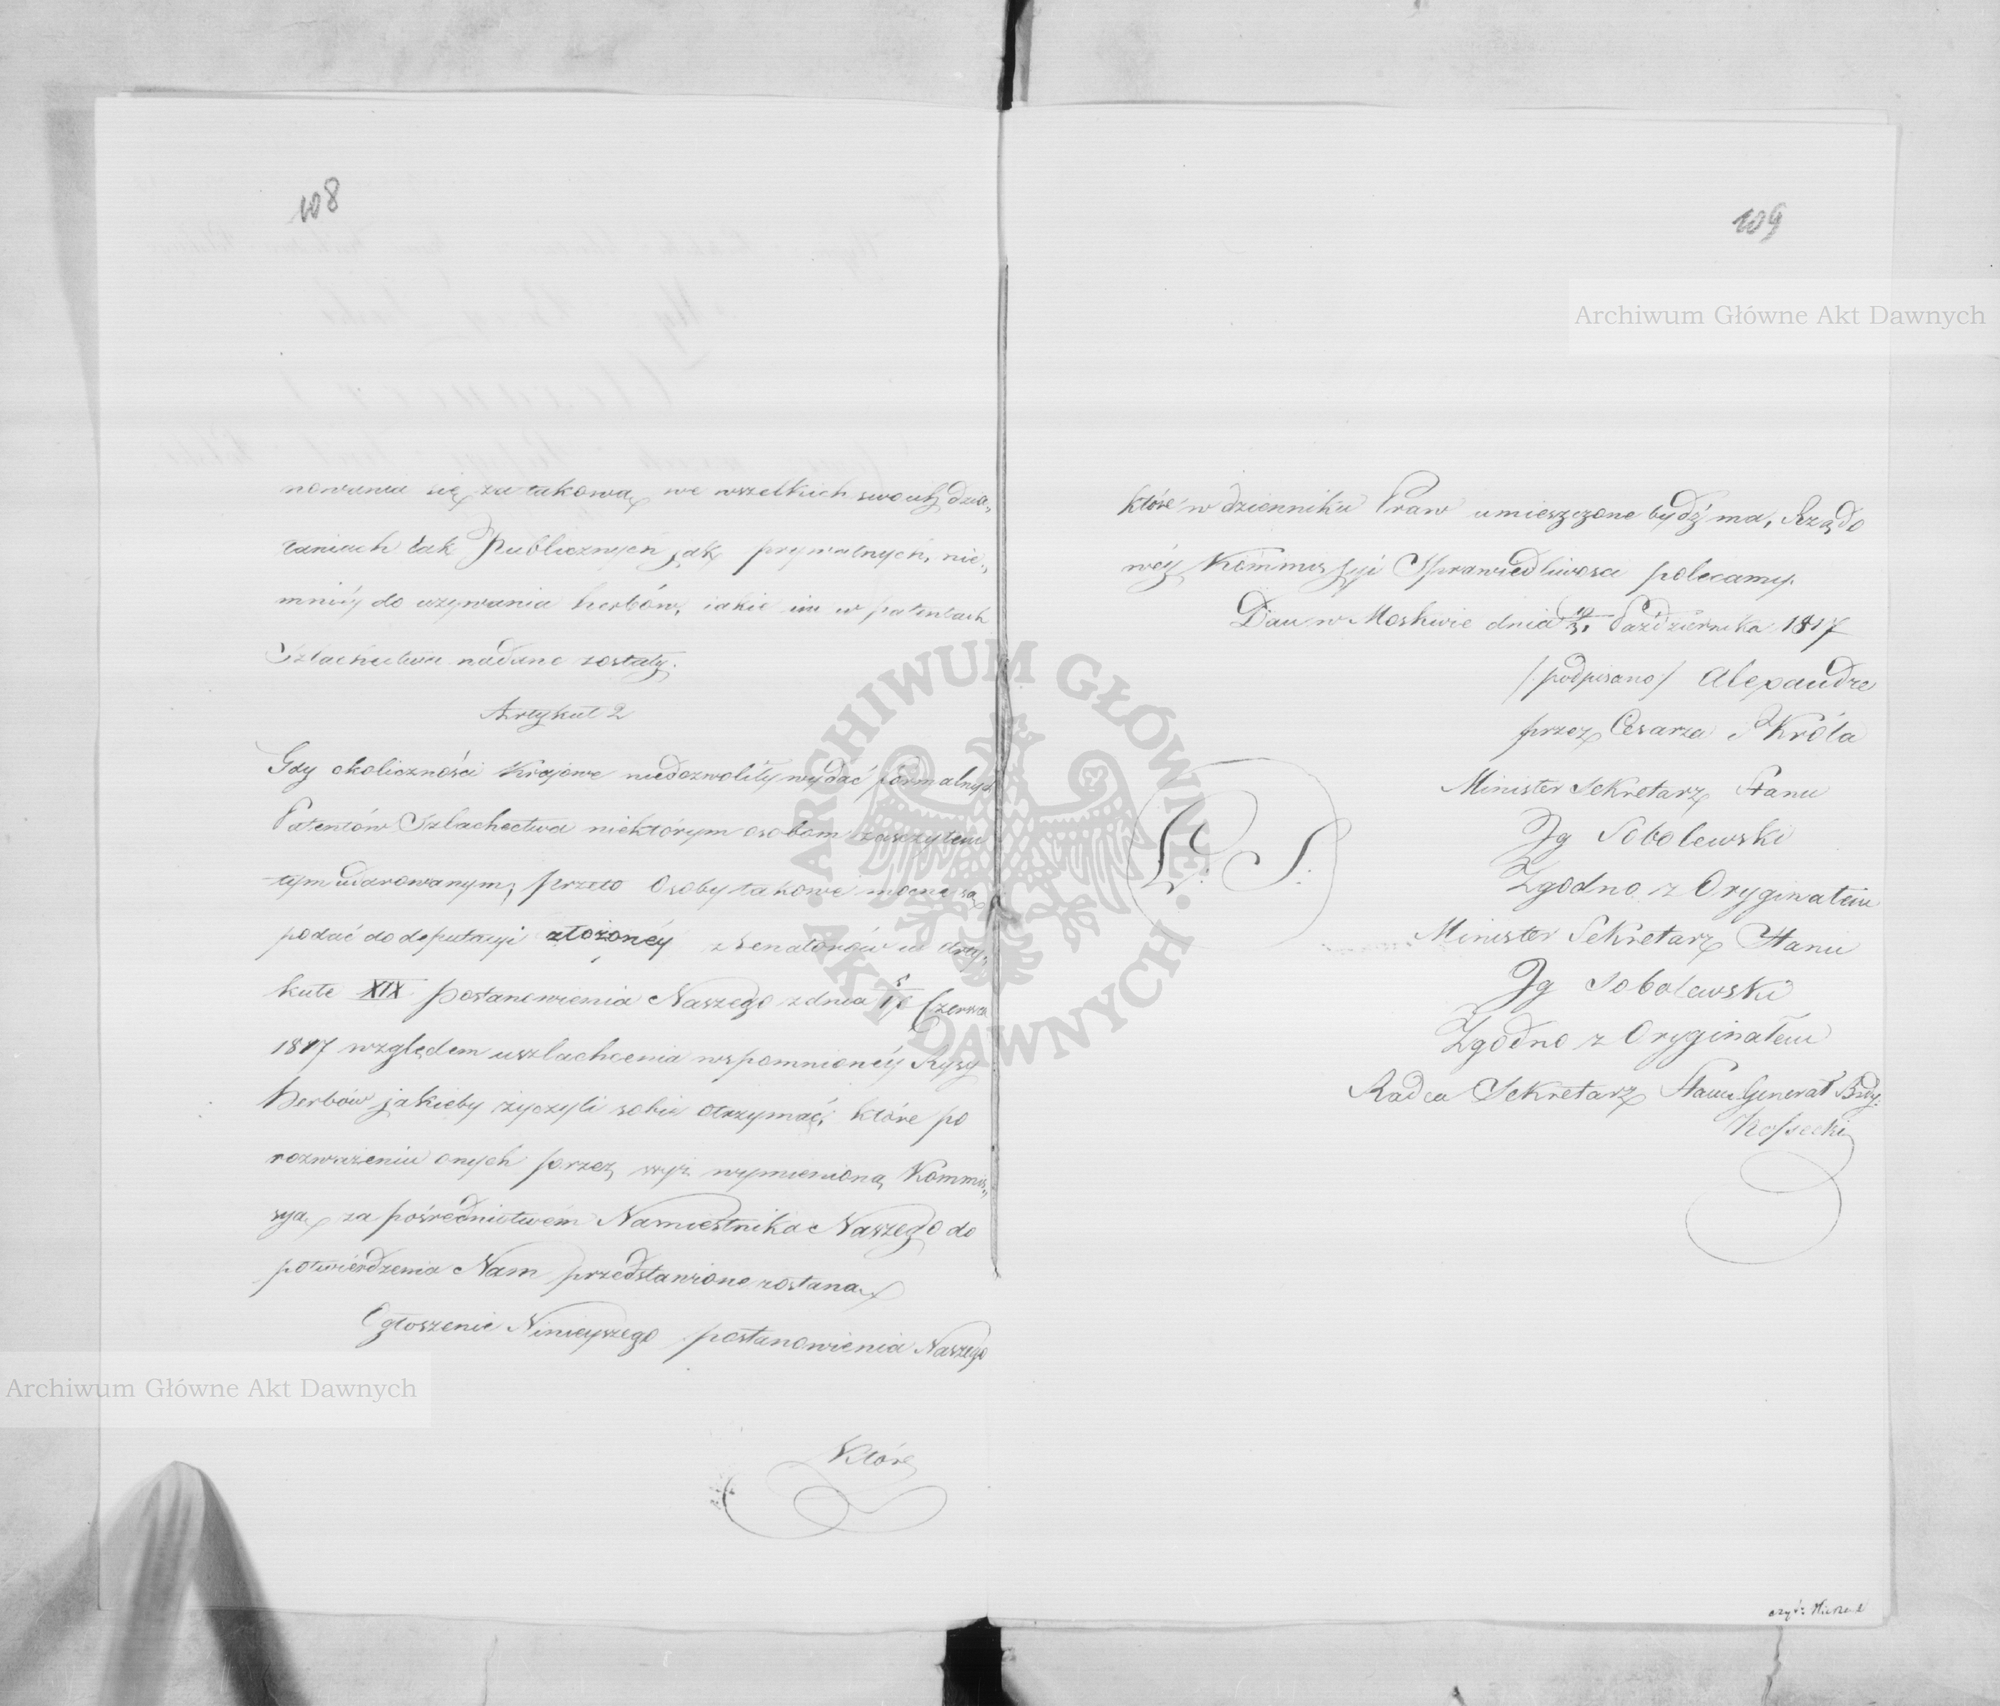 108
nowania się za takową we wszelkich swoich dzia„
łaniach tak Publicznych jak prywatnych, nie„
mniéy do używania herbów, iakie im w patentach
Szlachectwa nadane zostały.
Artykuł 2
Gdy okoliczności Kraiowe niedozwoliły wydać formalnych
Patentów Szlachectwa niektórym osobom zaszczytem
tym udarowanym; przeto Osoby takowe mocne są
podać do deputacyi złożonéy z Senatorów w Arty„
kule XIX postanowienia Naszego z dnia 5/17 Czerwca
1817 względem uszlachcenia wspomnionéy Rysy
Herbów jakieby życzyli sobie otrzymać; które po
rozważeniu onych przez wyż wymienioną Kommis„
syą za pośrednictwem Namiestnika Naszego do
potwierdzenia Nam przedstawione zostaną
Ogłoszenie Ninieyszego postanowienia Naszego
Które
109
które w dzienniku Praw umieszczone bydź ma, Rządo
wéy Kommissyi Sprawiedliwosci polecamy.
Dan w Moskwie dnia 19/31 Października 1817
/podpisano/ Alexandre
przez Cesarza i Króla
Minister Sekretarz Stanu
Ig Sobolewski
Zgodno z Oryginałem
Minister Sekretarz Stanu
Ig Sobolewski
Zgodno z Oryginałem
Radca Sekretarz Stanu Generał Bry:
Kossecki
L: S:
Archiwum Główne Akt Dawnych
Archiwum Główne Akt Dawnych
· ARCHIWUM GŁÓWNE · AKT DAWNYCH ·